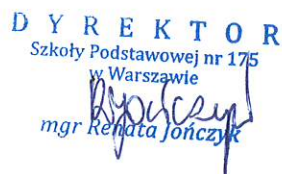 D Y R E K T O R
Szkoły Podstawowej nr 175
w Warszawie
mgr Renata Jończyk